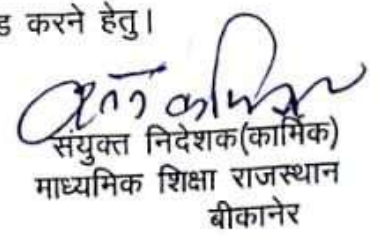 करने हेतु।
संयुक्त निदेशक(कार्मिक)
माध्यमिक शिक्षा राजस्थान
बीकानेर